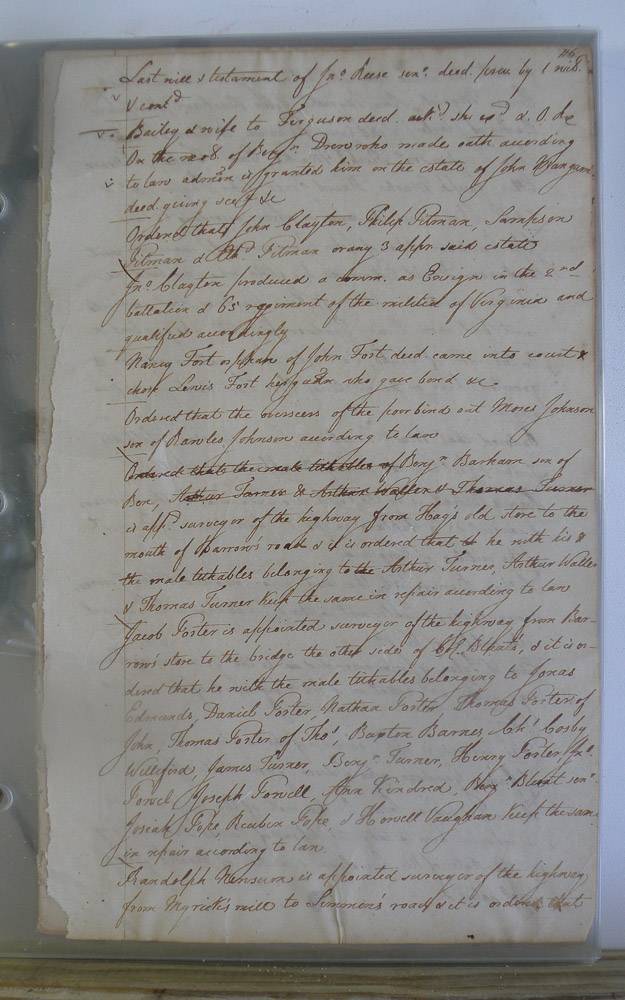 216
Last will & testament of Jno. Reese senr. decd. prov. by 1 wit.
& contd
Bailey & wife to Ferguson deed ackd. she exd. & O Re
On the mo. of Benjn. Drew who made oath according
to law admon is granted him on the estate of John
deed. giving sect &c
Ordered that John Clayton, Philip Pitman, Sampson
Pitman & Pitman or any 3 appr. said estate
Jno. Clayton produced a comm. as Ensign in the 2nd
battalion & 65 regiment of the militia of Virginia and
qualified accordingly
Nancy Fort orphan of John Fort decd. came into court &
chose Lewis Fort her gudn who gave bond &c
Ordered that the overseers of the poor bind out Moses Johnson
son of Rawles Johnson according to law
Ordered that the male tithables of Benjn. Barham son of
Ben, Arthur Turner & Arthur Waller & Thomas Turner
is appd. surveyor of the highway from Hag's old store to the
mouth of Barrow's road & it is ordered that he with his &
the male tithables belonging to the Arthur Turner, Arthur Waller
& Thomas Turner keep the same in repair according to law
Jacob Foster is appointed surveyor of the highway from Bar-
row's store to the bridge the other sides of Col. Blunt's, & it is or-
dered that he with the male tithables belonging to Jonas
Edmunds, Daniel Foster, Nathan Foster, Thomas Foster of
John, Thomas Foster of Thos., Baxton Barnes, Cosby
Williford, James Turner, Benjn. Turner, Henry Foster, Jno.
Powel, Joseph Powell, Ann Kindred, Benjn. Blunt senr.
Josiah Pope, Reubin Pope, & Howell Vaughan keep the same
in repair according to law
Randolph Newsum is appointed surveyor of the highway
from Myrick's mill to Simmon's road & it is ordered that